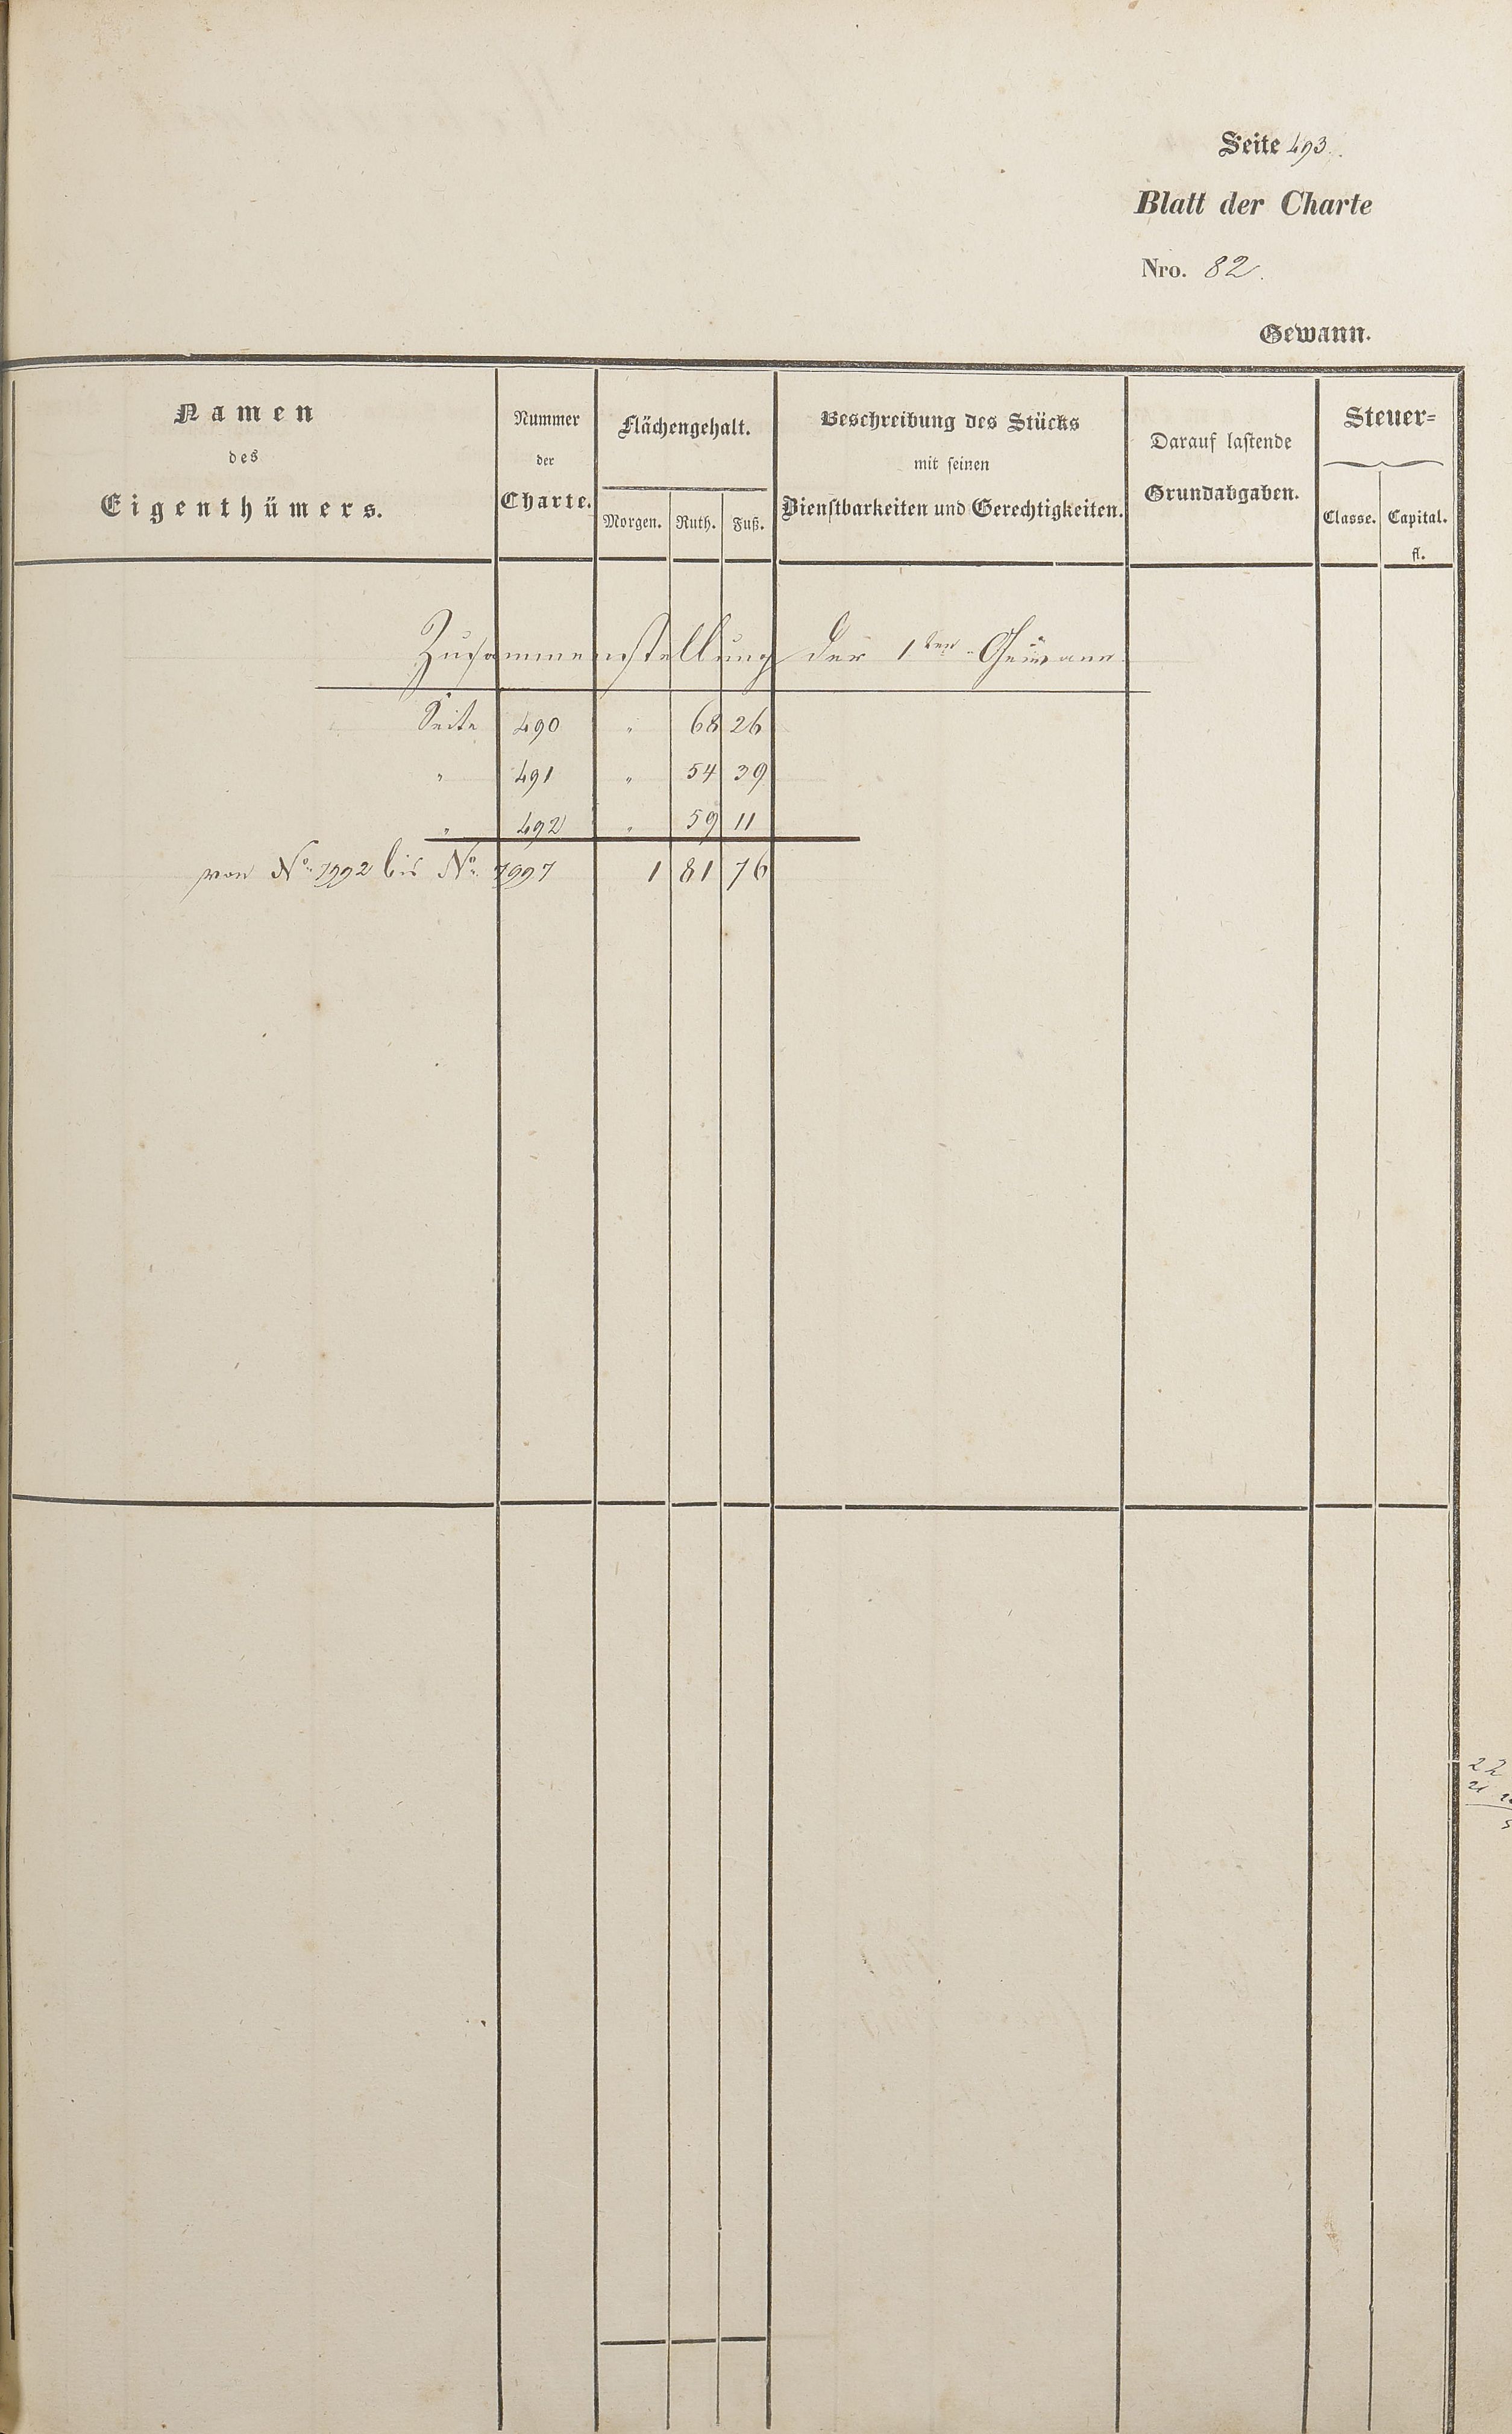 Seite 493.
Blatt der Charte
Nro. 82.
Gewann.
Namen
des
Eigenthümers.
Nummer
der
Charte.
Flächengehalt.
Morgen. Ruth. Fuß.
Beschreibung des Stücks
mit seinen
Dienstbarkeiten und Gerechtigkeiten.
Darauf lastende
Grundabgaben.
Steuer=
Classe. Capital.
fl.
Zusammenstellung der 1ten Gewann.
Seite 490 " 68 26
" 491 " 54 39
" 492 " 59 11
von No. 1992 bis No. 1997 1 81 76
22
21